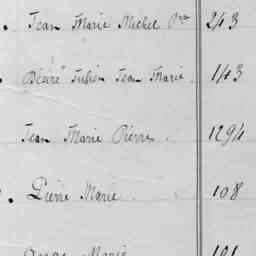 Jean Marie Michel 243
Désiré Julien Jean Marie 143
Jean Marie Pierre 1294
Pierre Marie 108
Marie 191